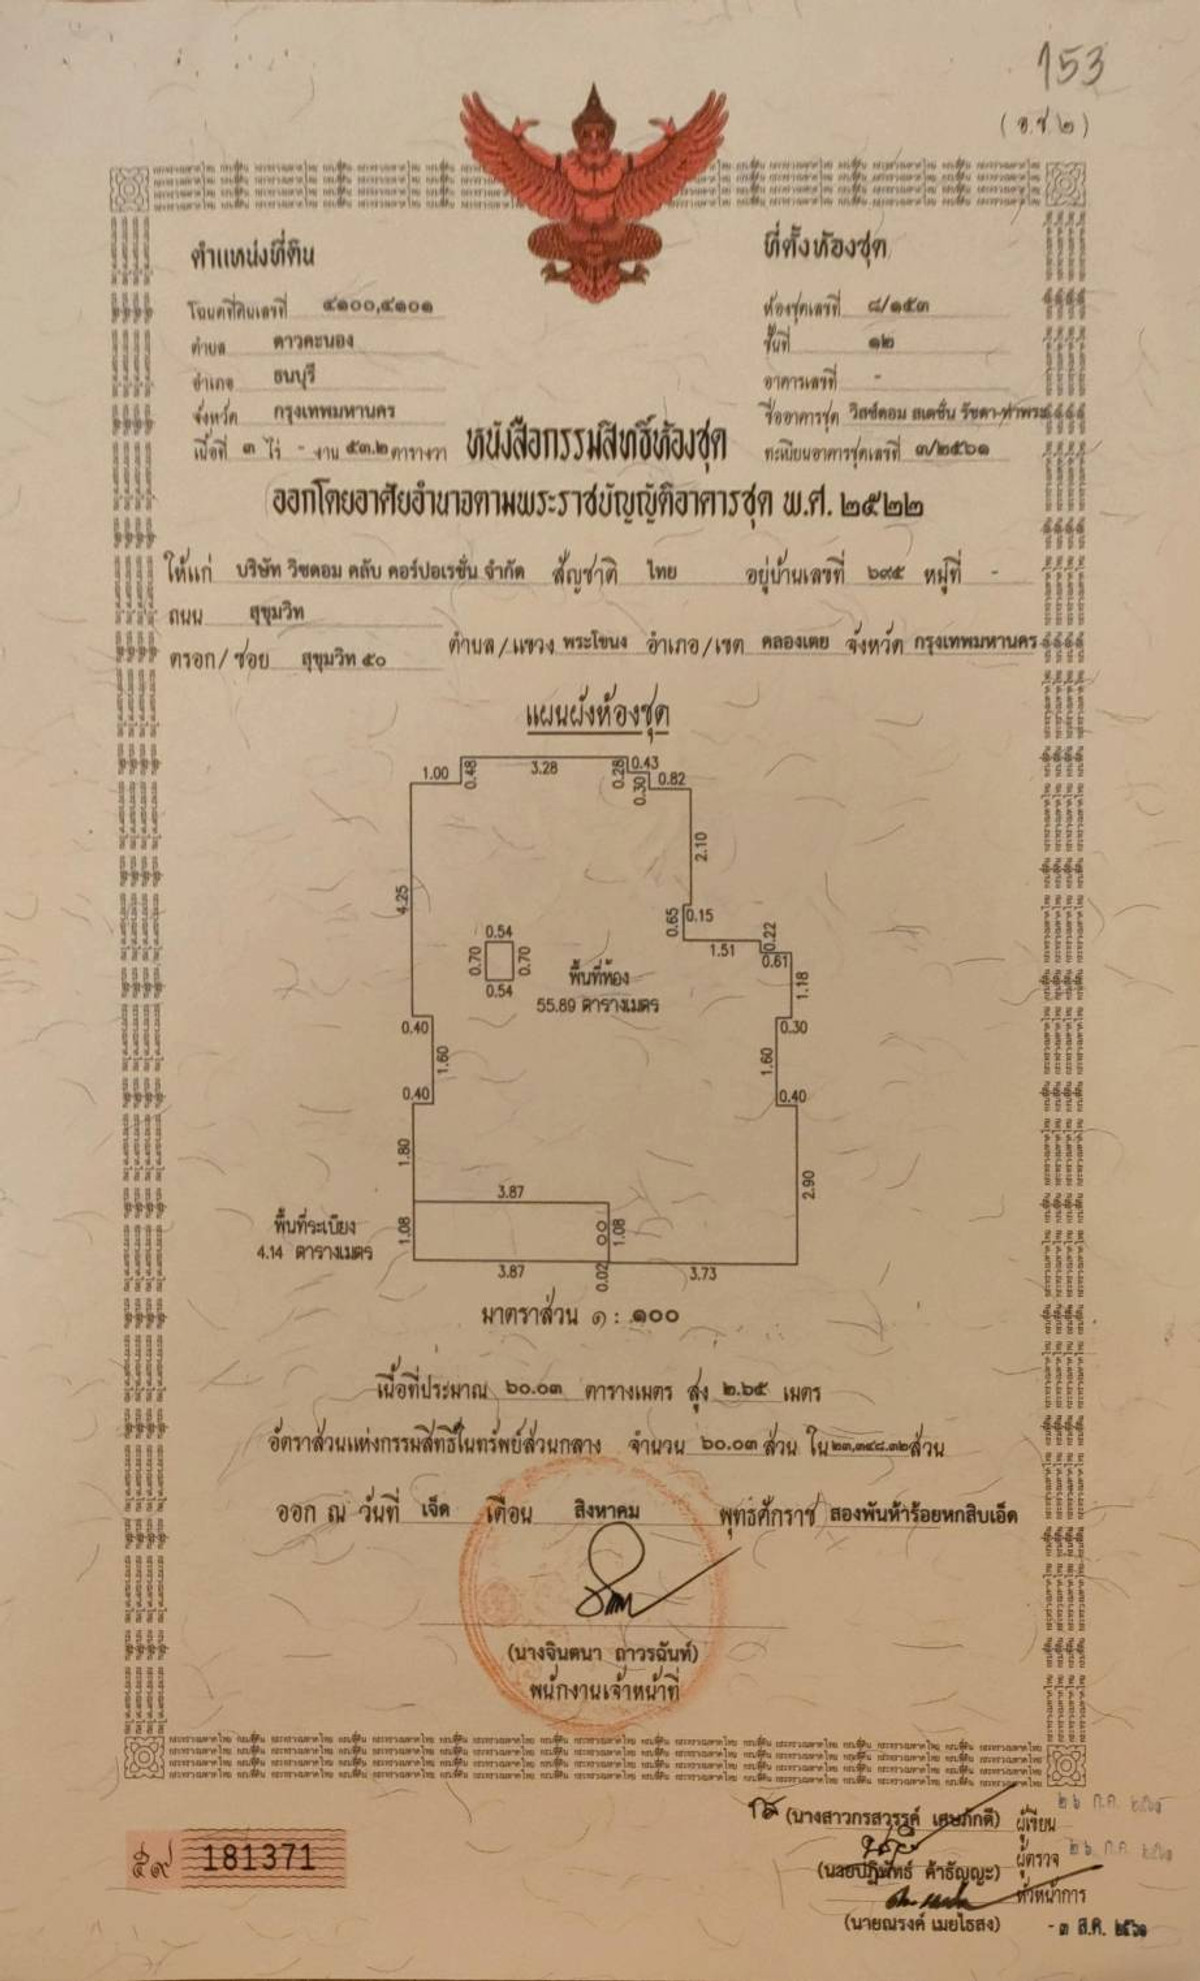 153
(อ.ช.๒)
ตำแหน่งที่ดิน
โฉนดที่ดินเลขที่ ๔๑๐๐,๔๑๐๑
ตำบล ดาวคะนอง
อำเภอ ธนบุรี
จังหวัด กรุงเทพมหานคร
เนื้อที่ ๓ ไร่ - งาน ๕๓.๒ ตารางวา
ที่ตั้งห้องชุด
ห้องชุดเลขที่ ๘/๑๕๓
ชั้นที่ ๑๒
อาคารเลขที่ -
ชื่ออาคารชุด วิสซ์ดอม สเตชั่น รัชดา-ท่าพระ
ทะเบียนอาคารชุดเลขที่ ๓/๒๕๖๑
หนังสือกรรมสิทธิ์ห้องชุด
ออกโดยอาศัยอำนาจตามพระราชบัญญัติอาคารชุด พ.ศ. ๒๕๒๒
ให้แก่ บริษัท วิซดอม คลับ คอร์ปอเรชั่น จำกัด สัญชาติ ไทย อยู่บ้านเลขที่ ๖๙๕ หมู่ที่ -
ถนน สุขุมวิท
ตรอก/ซอย สุขุมวิท ๕๐ ตำบล/แขวง พระโขนง อำเภอ/เขต คลองเตย จังหวัด กรุงเทพมหานคร
แผนผังห้องชุด
1.00 0.48 3.28 0.28 0.43
0.30 0.82
2.10
4.25
0.65 0.15
0.54
0.70 0.70
0.54
1.51 0.22
0.61
พื้นที่ห้อง
55.89 ตารางเมตร
1.18
0.40 0.30
1.60 1.60
0.40 0.40
1.80
2.90
3.87
พื้นที่ระเบียง
4.14 ตารางเมตร
1.08 1.08
3.87 0.02 3.73
มาตราส่วน ๑ : ๑๐๐
เนื้อที่ประมาณ ๖๐.๐๓ ตารางเมตร สูง ๒.๖๕ เมตร
อัตราส่วนแห่งกรรมสิทธิ์ในทรัพย์ส่วนกลาง จำนวน ๖๐.๐๓ ส่วน ใน ๒๓,๓๔๘.๓๒ ส่วน
ออก ณ วันที่ เจ็ด เดือน สิงหาคม พุทธศักราช สองพันห้าร้อยหกสิบเอ็ด
(นางจินตนา ถาวรฉันท์)
พนักงานเจ้าหน้าที่
๕๙ 181371
(นางสาวกรสวรรค์ เศษภักดี) ผู้เขียน
๒๖ ก.ค. ๒๕๖๑
(นายปฏิพัทธ์ ค้าธัญญะ) ผู้ตรวจ
๒๖ ก.ค. ๒๕๖๑
หัวหน้าการ
(นายณรงค์ เมยไธสง) - ๓ ส.ค. ๒๕๖๑